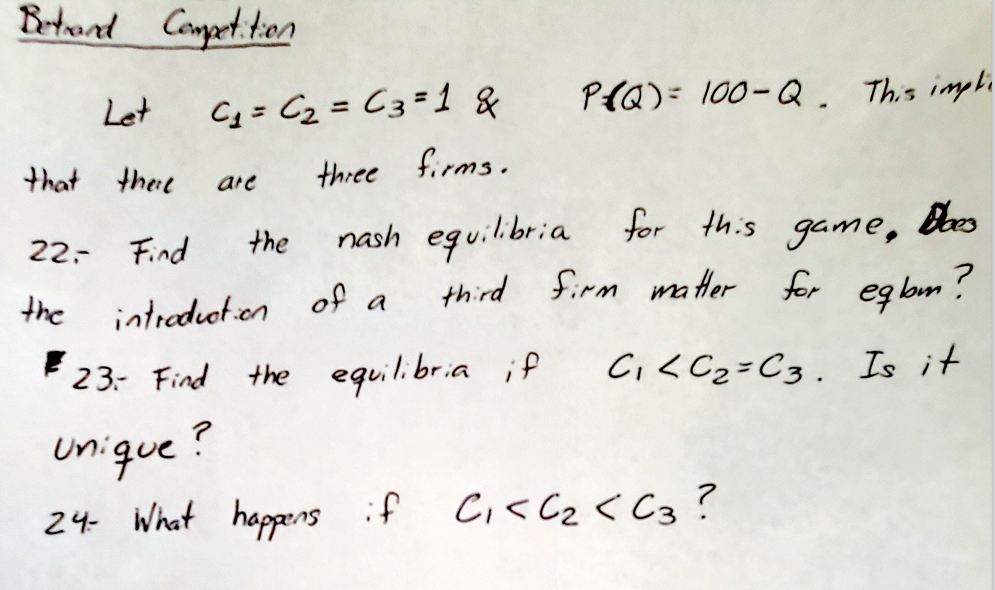 Betrand Competition
Let C₁ = C₂ = C₃ = 1 & P(Q) = 100 - Q. This impli
that there are three firms.
22.- Find the nash equilibria for this game. Does
the introduction of a third firm matter for eqbm?
23.- Find the equilibria if C₁ < C₂ = C₃. Is it
unique?
24- What happens if C₁ < C₂ < C₃?